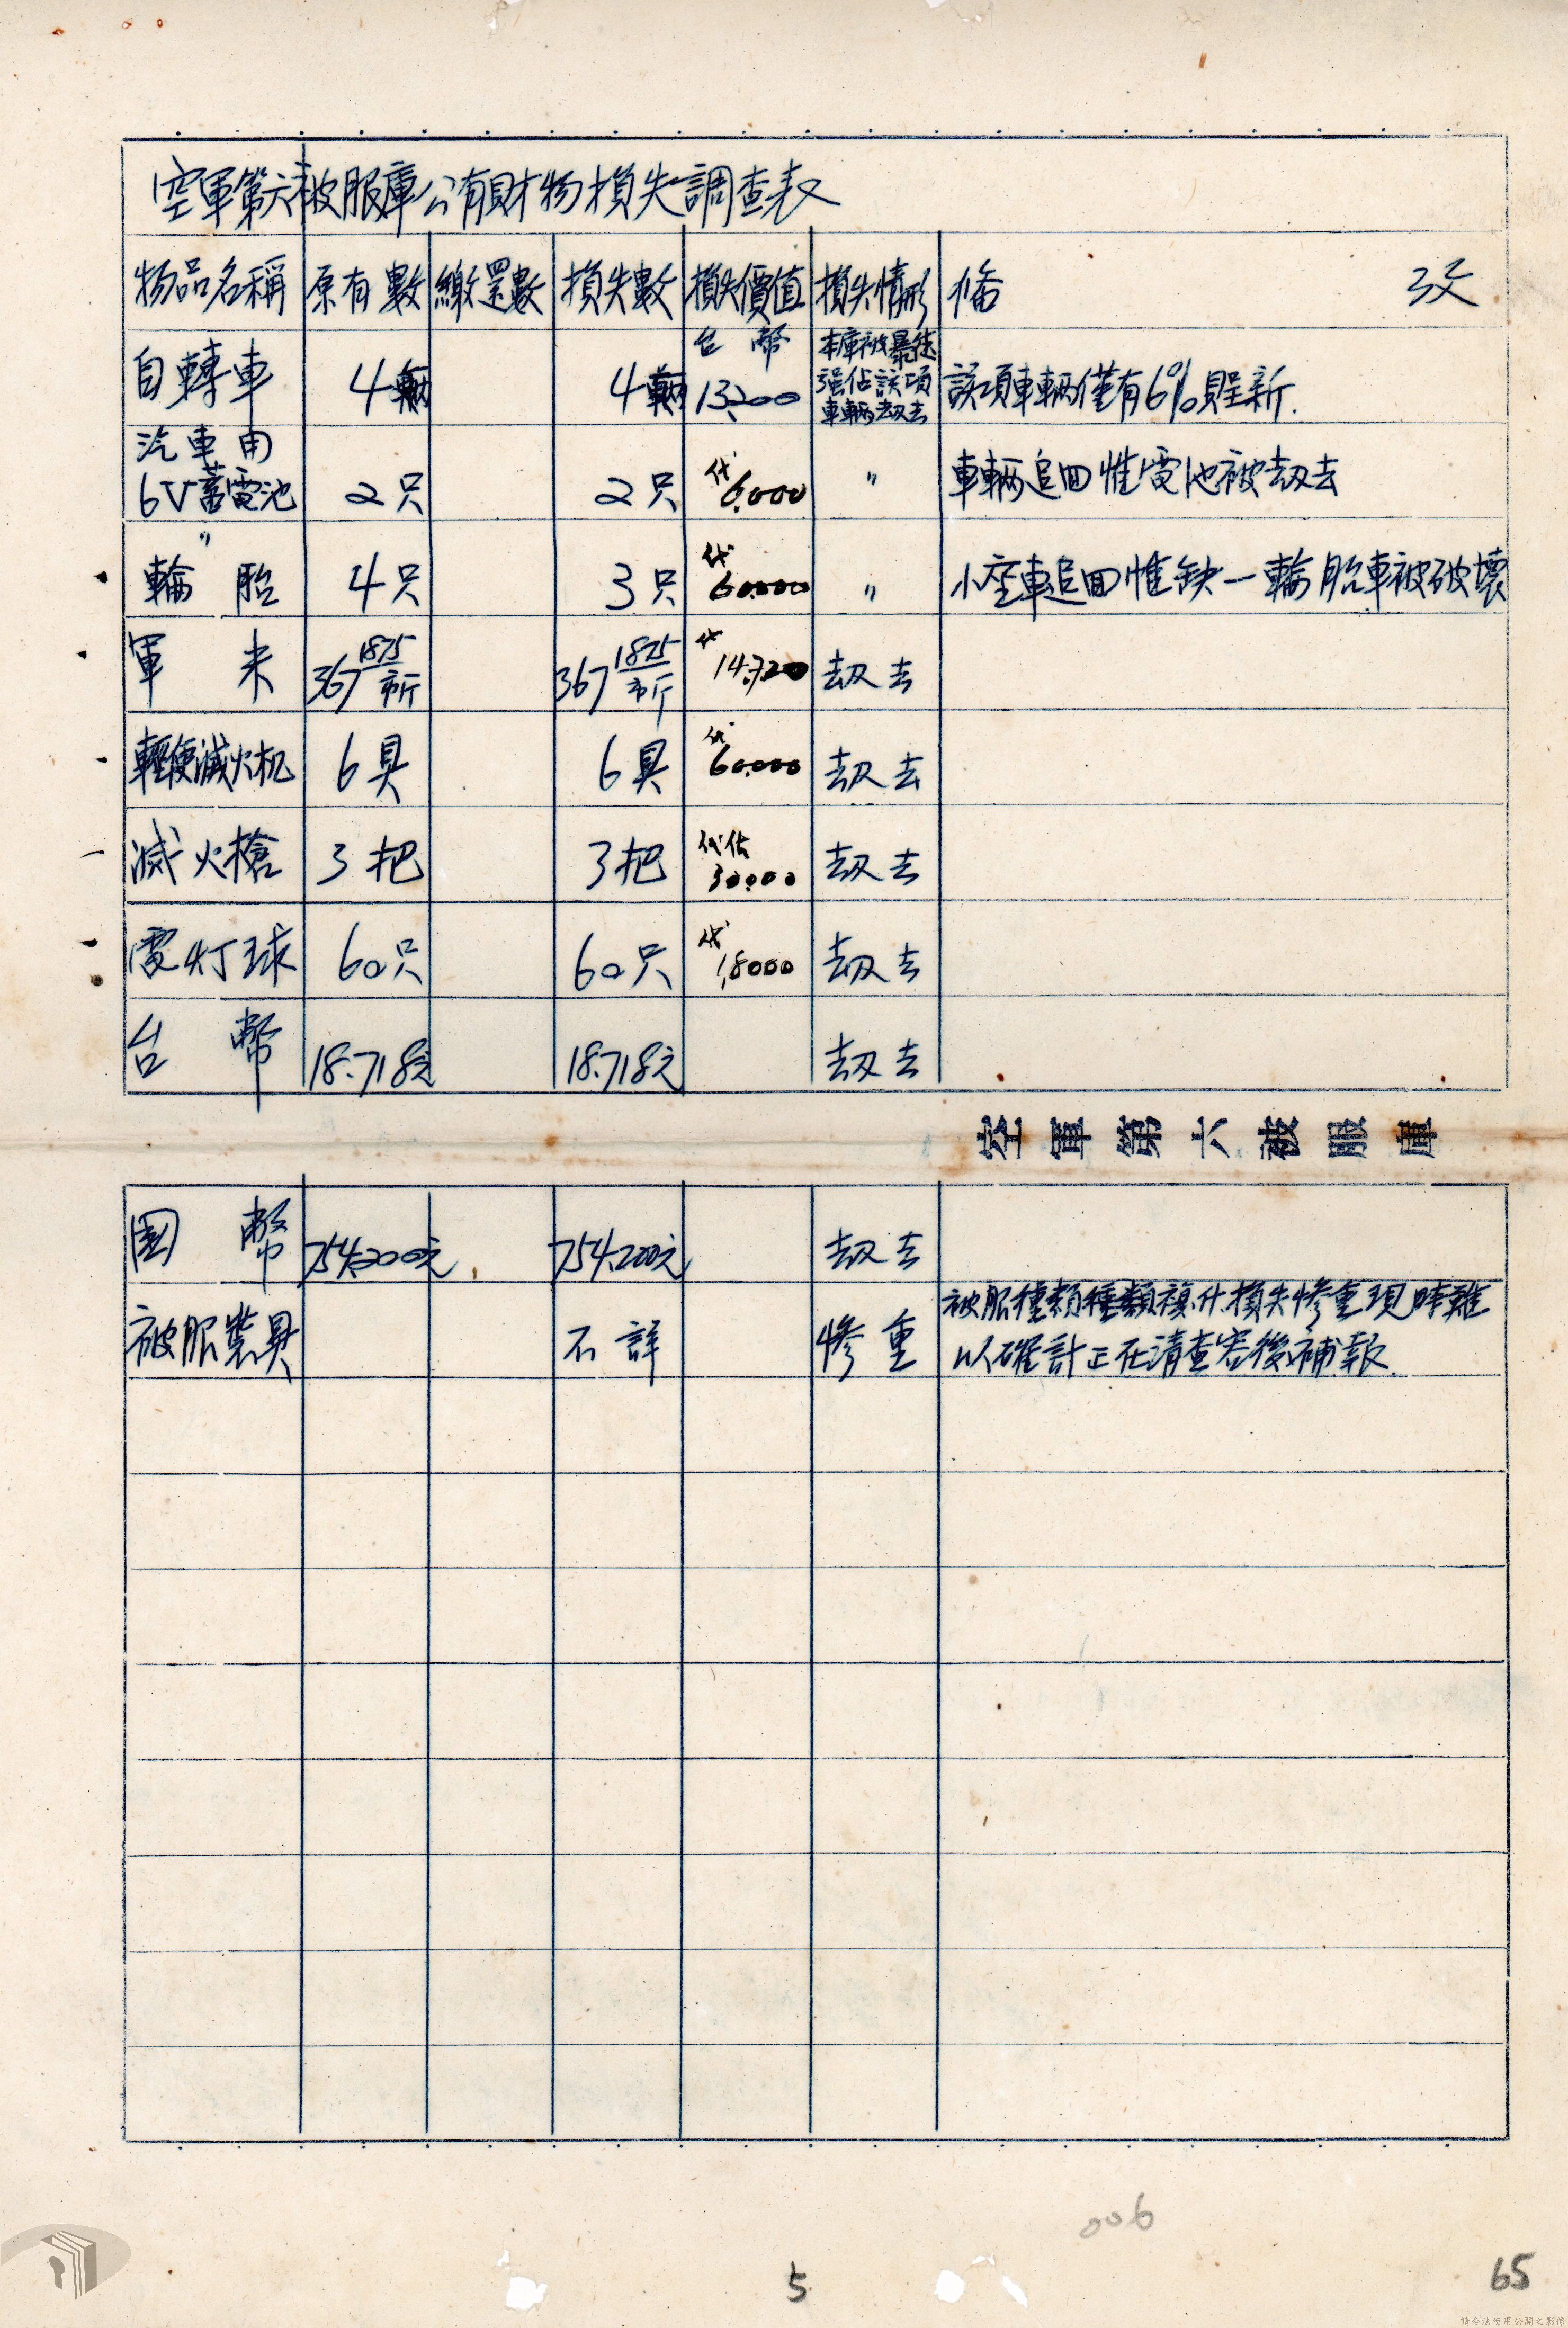 空軍第六被服庫公有財物損失調查表
物品名稱 原有數 繳還數 損失數 損失價值 損失情形 備 攷
自轉車 4輛 4輛 台幣 13,200 本庫被暴徒強佔該項車輛刼去 該項車輛僅有6% 新.
汽車用
6V蓄電池 2只 2只 6,000 〃 車輛追回惟電池被刼去
〃
輪胎 4只 3只 60,000 〃 小座車追回惟缺一輪胎車被破壞
軍米 367 1875 市斤 367 1875 市斤 14,720 刼去
輕便滅火机 6具 6具 60,000 刼去
滅火槍 3把 3把 30,000 刼去
電灯球 60只 60只 18000 刼去
台幣 18,718元 18,718元 刼去
空軍第六被服庫
國幣 754,200元 754,200元 刼去
被服裝具 不詳 慘重 被服種類種類複什損失慘重現時難
以確計正在清查容後補報.
006
5
65
請合法使用公開之影像